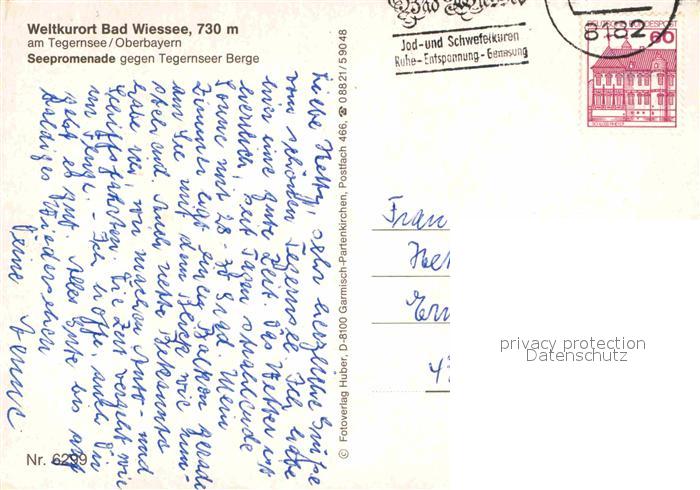 Weltkurort Bad Wiessee, 730 m
am Tegernsee/Oberbayern
Seepromenade gegen Tegernseer Berge
Bad Wiessee
Jod- und Schwefelkuren
Ruhe-Entspannung-Genesung
8182
DEUTSCHE BUNDESPOST
60
Liebe Hetty, sehr herzliche Grüße
vom schönen Tegernsee. Ich habe
hier eine gute Zeit. Das Wetter ist
herrlich, seit Tagen strahlende
Sonne mit 28-30 Grad. Mein
Zimmer liegt einen Balkon gerade
am See mit dem Blick wie
aber und auch nette Bekannte
habe ich, wir machen Auto- und
Schiffsfahrten. Die Zeit vergeht wie
im Fluge. - Ich hoffe, auch Dir
geht es gut. Alles Gute bis auf
baldiges Wiedersehen
Deine
© Fotoverlag Huber, D-8100 Garmisch-Partenkirchen, Postfach 466, ☎ 08821/59048
Frau
Het
4
Nr. 6299
privacy protection
Datenschutz